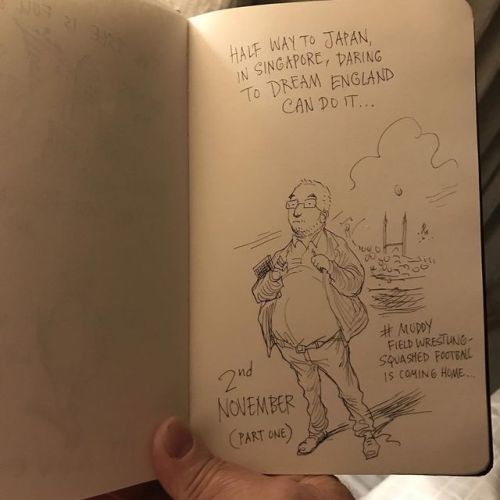 HALF WAY TO JAPAN,
IN SINGAPORE, DARING
TO DREAM ENGLAND
CAN DO IT...
# MUDDY
FIELD WRESTLING-
SQUASHED FOOTBALL
IS COMING HOME...
2nd
NOVEMBER
(PART ONE)